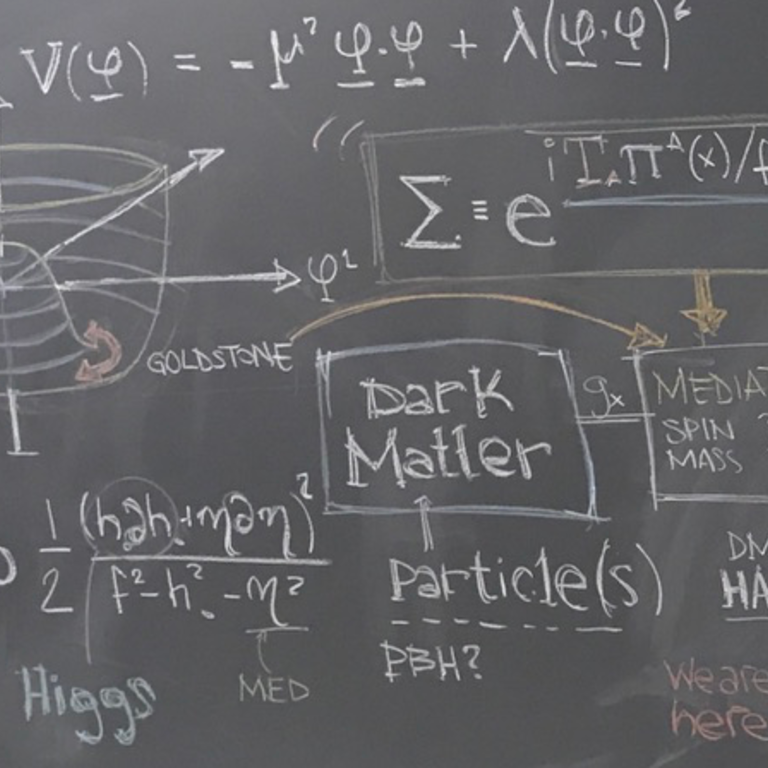 V(φ) = -μ² φ·φ + λ(φ·φ)²
Σ ≡ e^iT_Aπ^A(x)/f
φ¹
GOLDSTONE
Dark
Matter
g_x
MEDIAT
SPIN
MASS
1/2 (h∂h+η∂η)²/f²-h²-η²
MED
Particle(s)
PBH?
DM
HA
Higgs
We are
here